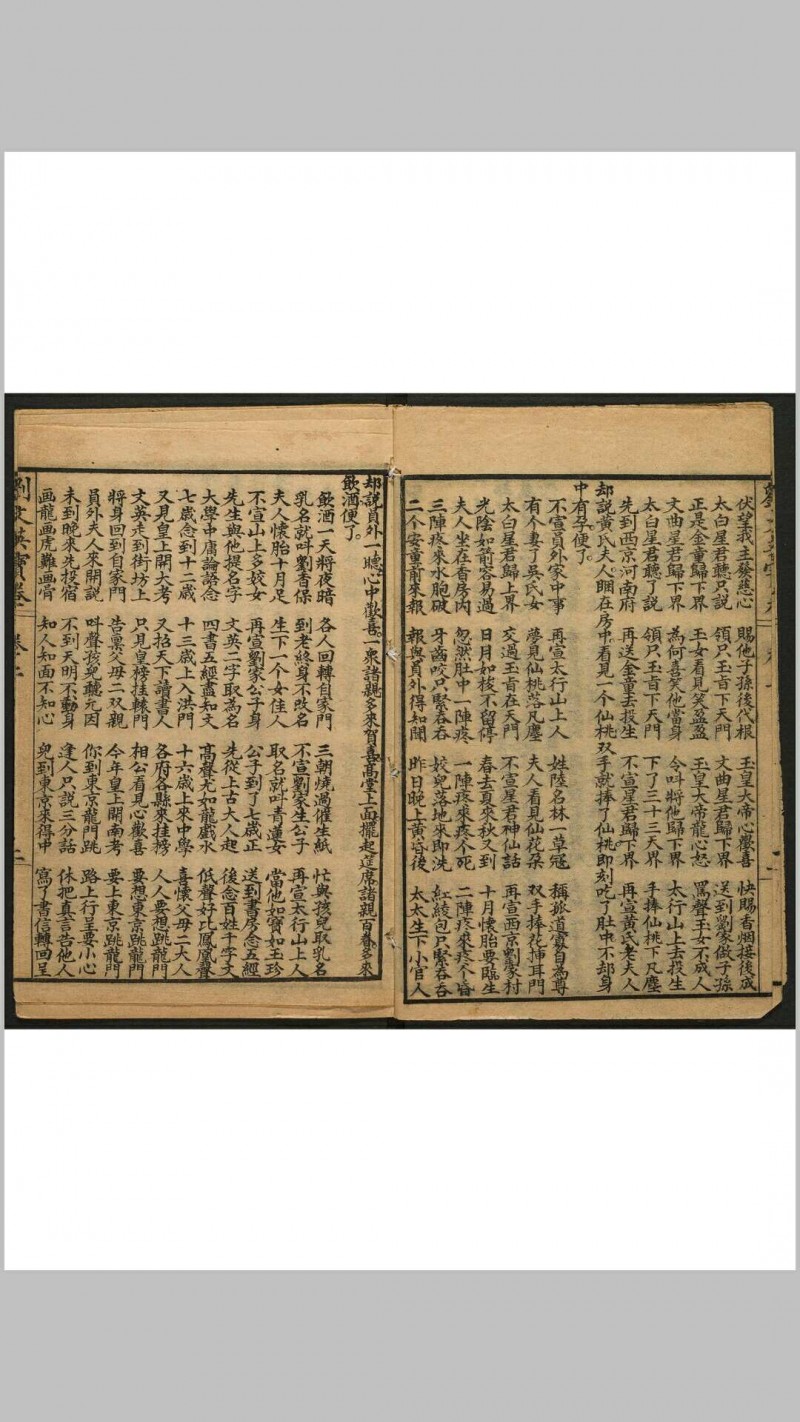 伏望我主發慈心　賜他子孫後代根　玉皇大帝心歡喜　快賜香烟接後成
太白星君聽只說　領只玉旨下天門　文曲星君歸下界　送到劉家做子孫
正是金童歸下界　玉女看見笑盈盈　玉皇大帝龍心怒　罵聲玉女不成人
文曲星君歸下界　為何喜笑他當身　今叫將他歸下界　太行山上去投生
太白星君聽了說　領只玉旨下天門　下了三十三天界　手捧仙桃下凡塵
先到西京河南府　再送金童去投生　不宣星君歸下界　再宣黃氏老夫人
却說黃氏夫人睏在房中看見一个仙桃双手就捧了仙桃即刻吃了肚中不却身
中有孕便了。
不宣員外家中事　再宣太行山上人　姓陸名林一草冠　稱孤道寡自為尊
有个妻了吳氏女　夢見仙桃落凡塵　夫人看見仙花朵　双手捧花揷耳門
太白星君歸上界　交過玉旨在天門　不宣星君神仙話　再宣西京劉家村
光陰如箭容易過　日月如梭不留停　春去夏來秋又到　十月懷胎要臨生
夫人坐在香房內　忽然肚中一陣疼　一陣疼來疼个死　二陣疼來疼个昏
三陣疼來水胞破　牙齒咬只緊吞吞　姣兒落地來即洗　紅綾包只緊吞吞
二个安童前來報　報與員外得知聞　昨日晚上黃昏後　太太生下小官人
却說員外一聽心中歡喜。一衆諸親多來賀喜高堂上面擺起筵席諸親百眷多來
飲酒便了。
飲酒一天將夜暗　各人回轉自家門　三朝燒過催生紙　忙與孩兒取乳名
乳名就呌劉香保　到老終身不改名　不宣劉家生公子　再宣太行山上人
夫人懷胎十月足　生下一个女佳人　取名就呌青蓮女　當他如寶如玉珍
不宣山上多姣女　再宣劉家公子身　公子到了七歲正　送到書房念五經
先生與他提名字　文英二字取為名　先從上古大人起　後念百姓千字文
大學中庸論語念　四書五經盡知文　高聲尤如龍戲水　低聲好比鳳凰聲
七歲念到十二歲　十三歲上入洪門　十六歲上來中學　喜懷父母二大人
又見皇上開大考　又招天下讀書人　各府各縣來挂榜　人人要想跳龍門
文英走到街坊上　只見皇榜挂轅門　相公看見心歡喜　要想東京跳龍門
將身回到自家門　告禀父母二双親　今年皇上開南考　要上東京跳龍門
員外夫人來開說　呌聲孩兒聽元因　你到東京龍門跳　路上行呈要小心
未到晚來先投宿　不到天明不動身　逢人只說三分話　休把真言告他人
画龍画虎難画骨　知人知面不知心　兒到東京來得中　寫了書信轉回呈
劉文英寶卷